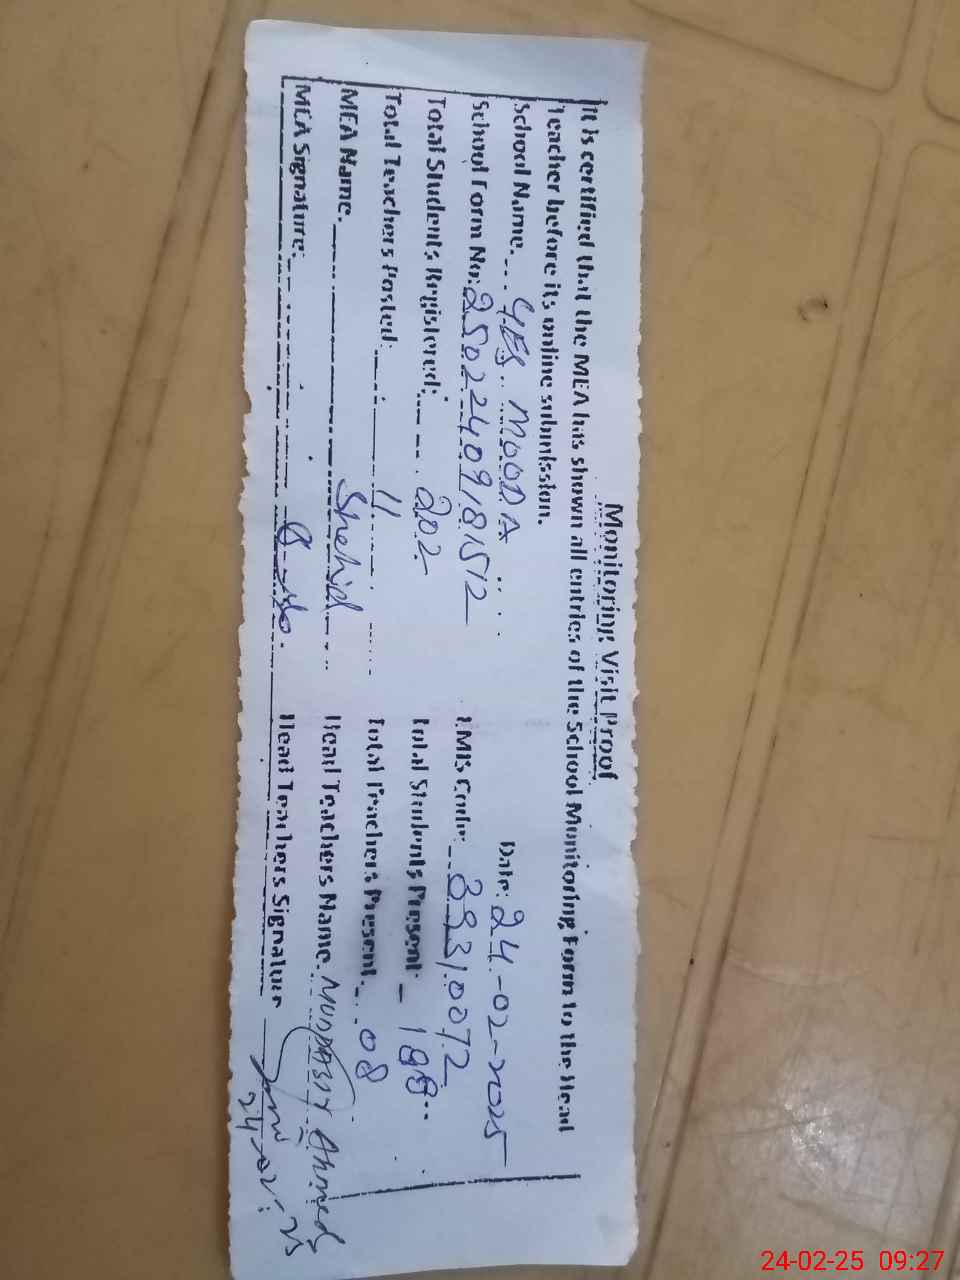 Monitoring Visit Proof
It is certified that the MEA has shown all entries of the School Monitoring Form to the Head
Teacher before its online submission.
Date: 24-02-2025
School Name. 4ES MOODA
School Form No: 25022409181512 EMIS Code: 33310072
Total Students Registered: 202 Total Students Present: 188
Total Teachers Posted: 11 Total Teachers Present. 08
MEA Name. Shahid Head Teachers Name. Mudassir Ahmed
MEA Signature: Head Teachers Signature
24-02-25
24-02-25 09:27